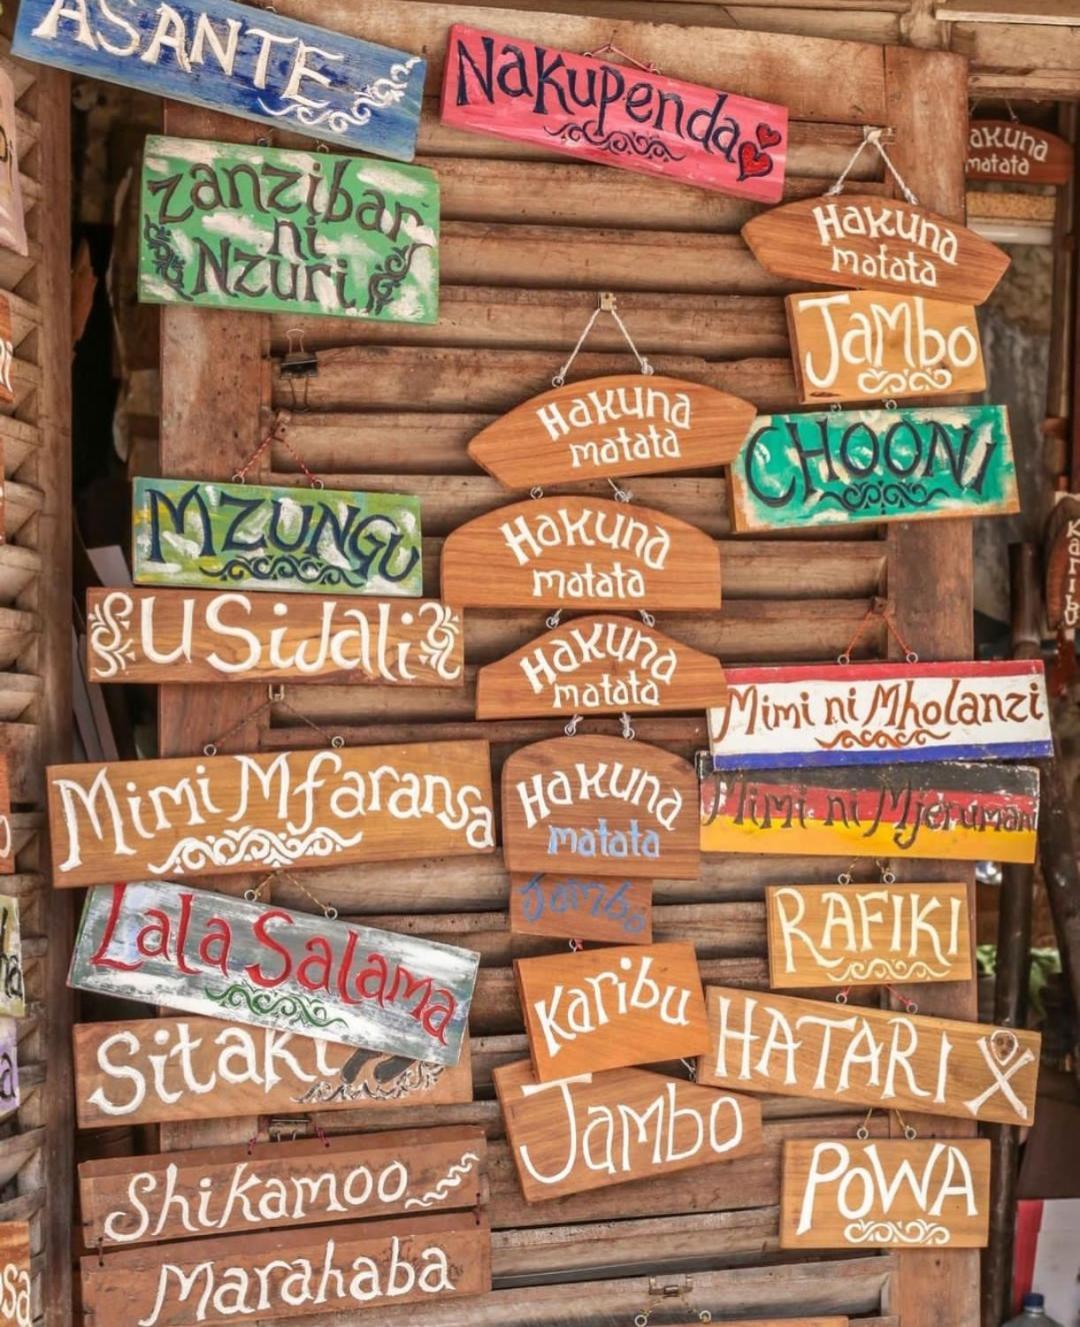 ASANTE
Nakupenda
zanzibar
ni
Nzuri
Hakuna
matata
akuna
matata
Jambo
Hakuna
matata
CHOONI
MZUNGU
Hakuna
matata
USiJali
Hakuna
matata
Mimi ni Mholanzi
Mimi Mfaransa
Hakuna
matata
Mimi ni Mjeruman
Jambo
Lala Salama
RAFIKI
Karibu
Sitaki
HATARI
Jambo
Shikamoo
POWA
Marahaba